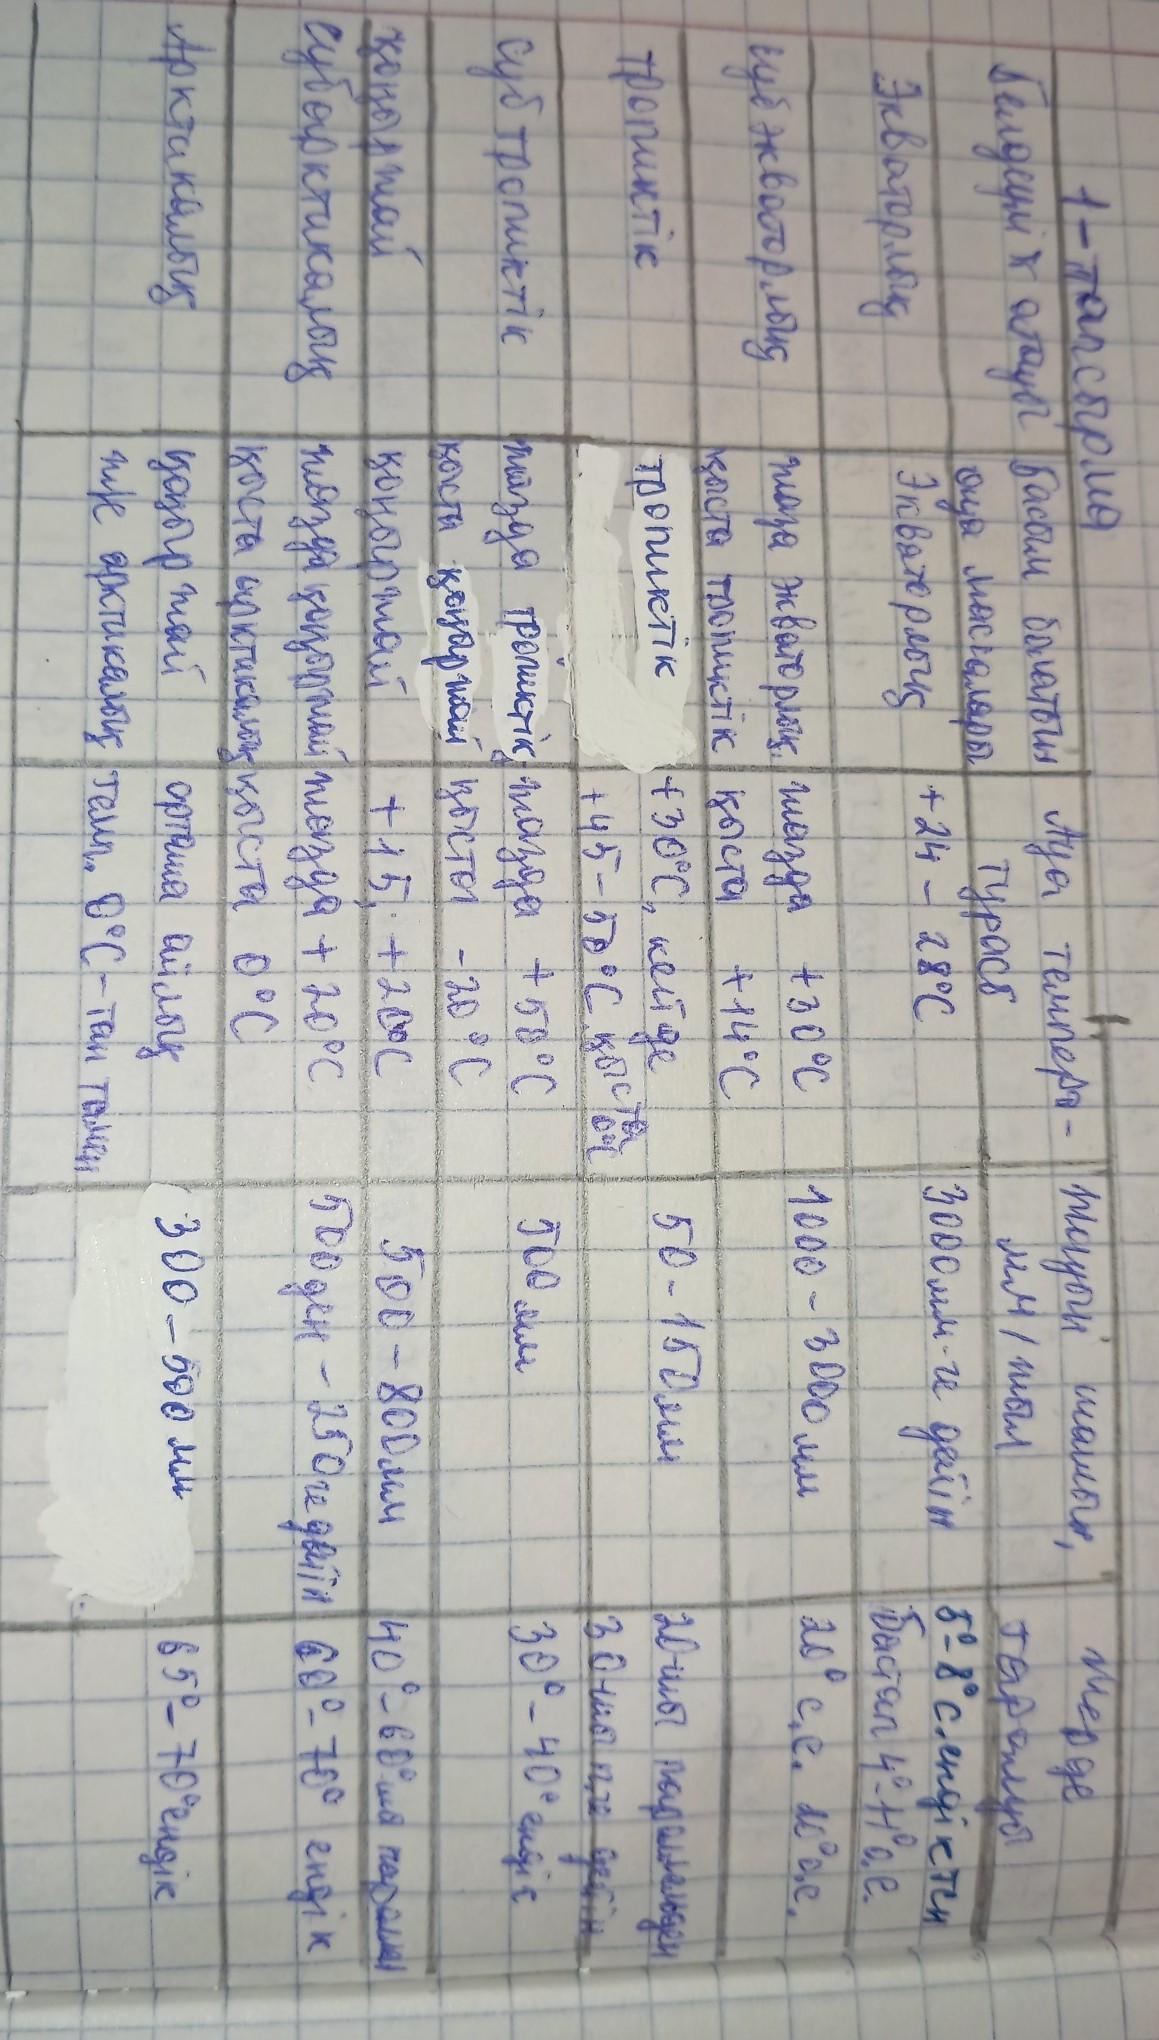 1-тапсырма
Белдеудің атауы
Басым болатын
ауа массалары
Ауа темпера-
турасы
Жауын шашын,
мм/жыл
Жерде
таралуы
Экваторлық
Экваторлық
+24 - 28°C
3000мм-ге дейін
5°-8° с.ендіктен
бастап 4°-11° о.е.
Субэкваторлық
жазда экваторлық,
қыста тропиктік
жазда +30°C
қыста +14°C
1000 - 3000 мм
20° с.е. 20° о.е.
тропиктік
тропиктік
+30°C, кейде
+45-50°C қыста
50 - 150мм
20-шы параллельден
30-шы п.ге дейін
субтропиктік
жазда тропиктік,
қыста қоңыржай
жазда +50°C
қыста -20°C
500 мм
30° - 40° ендік
қоңыржай
қоңыржай
+15, +20°C
500 - 800мм
40° - 60° ша параллел
субарктикалық
жазда қоңыржай
қыста арктикалық
жазда +20°C
қыста 0°C
500ден - 250ге дейін
60° - 70° ендік
Арктикалық
қоңыржай
н/е арктикалық
орташа айлық
темп. 0°C-тан төмен
300 - 500 мм
65° - 70° ендік